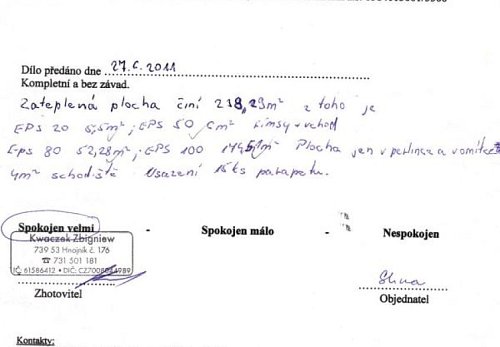 Dílo předáno dne 27.6.2011
Kompletní a bez závad.
Zateplená plocha činí 238,29m² z toho je
EPS 20 5,5m²; EPS 50 6m² římsy + vchod
Eps 80 52,28m²; EPS 100 174,51m² Plocha jen v perlince a
4m² schodiště Usazení 15ks parapetu.
Spokojen velmi - Spokojen málo - Nespokojen
Kwaczek Zbigniew
739 53 Hnojník č. 176
☎ 731 501 181
IČ: 61586412 • DIČ: CZ7008
Zhotovitel
Objednatel
Kontakty: